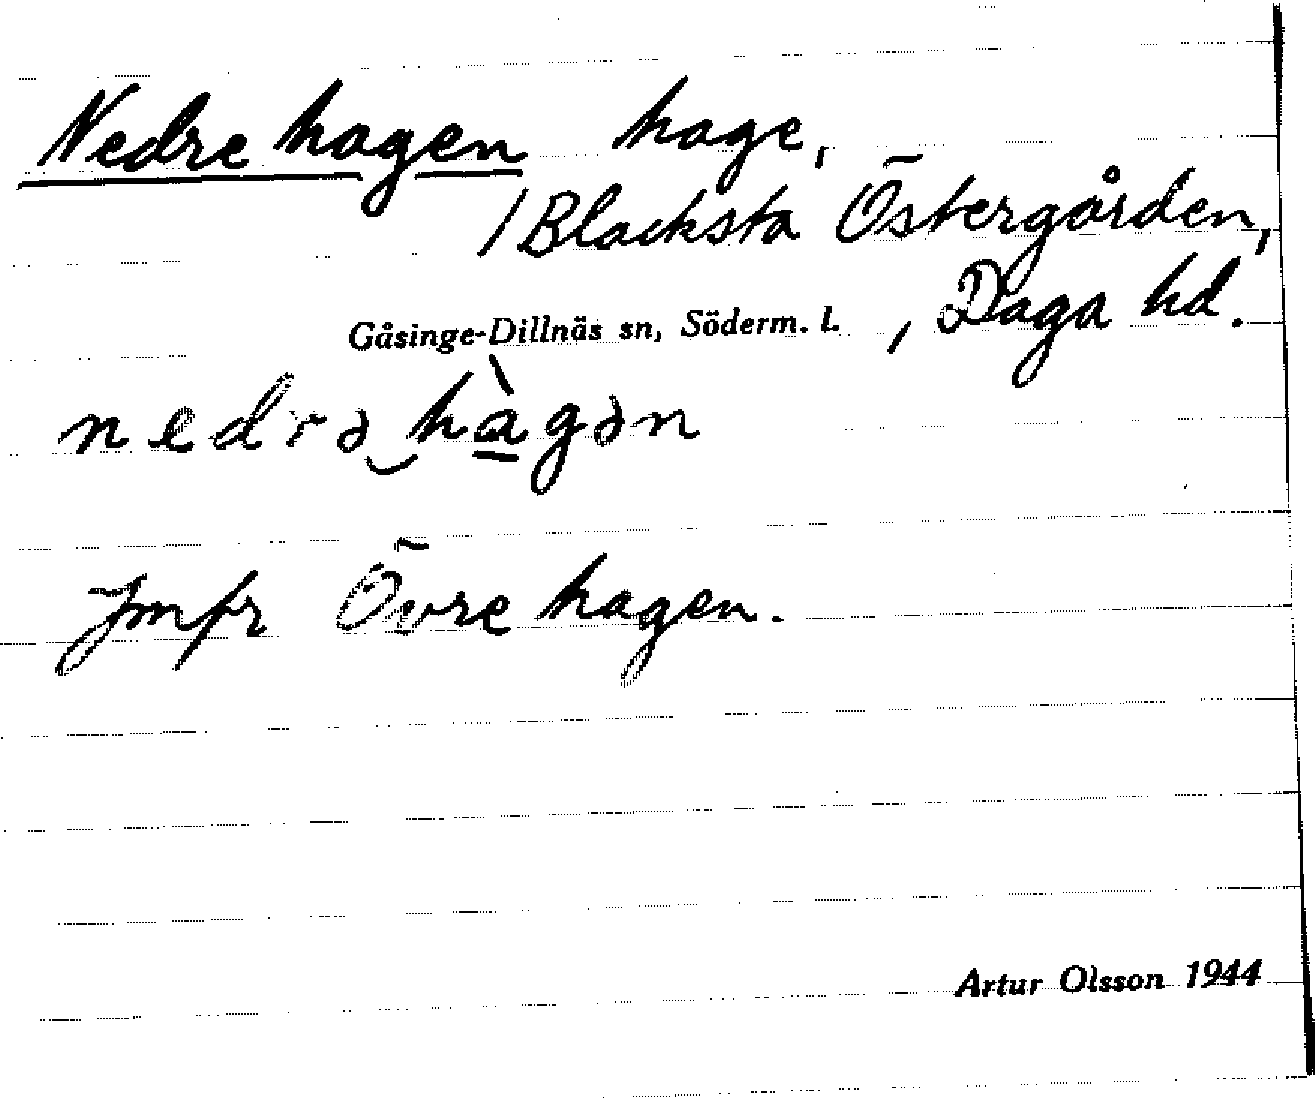 Nedre hagen hage,
/ Blacksta Östergården,
Gåsinge-Dillnäs sn, Söderm. l. , Daga hd.
nedrə‿hàgən
Jmfr Övre hagen.
Artur Olsson 1944